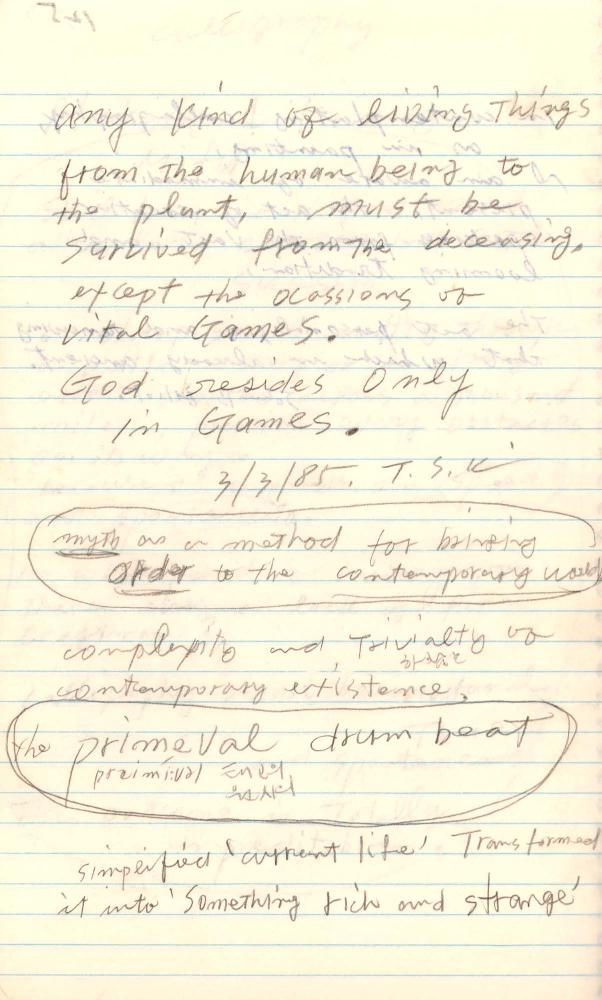 any kind of living Things
from the human being to
the plant, must be
survived from the deceasing,
except the ocassions of
vital Games.
God resides Only
in Games.
3/3/85. T.S.K
myth as a method for bringing
Order to the contemporary world
complexity and Trivialty of
하찮음
contemporary existence,
the primeval drum beat
praimi:val 태고의
원시의
simplified 'current life' Transformed
it into 'Something rich and strange'